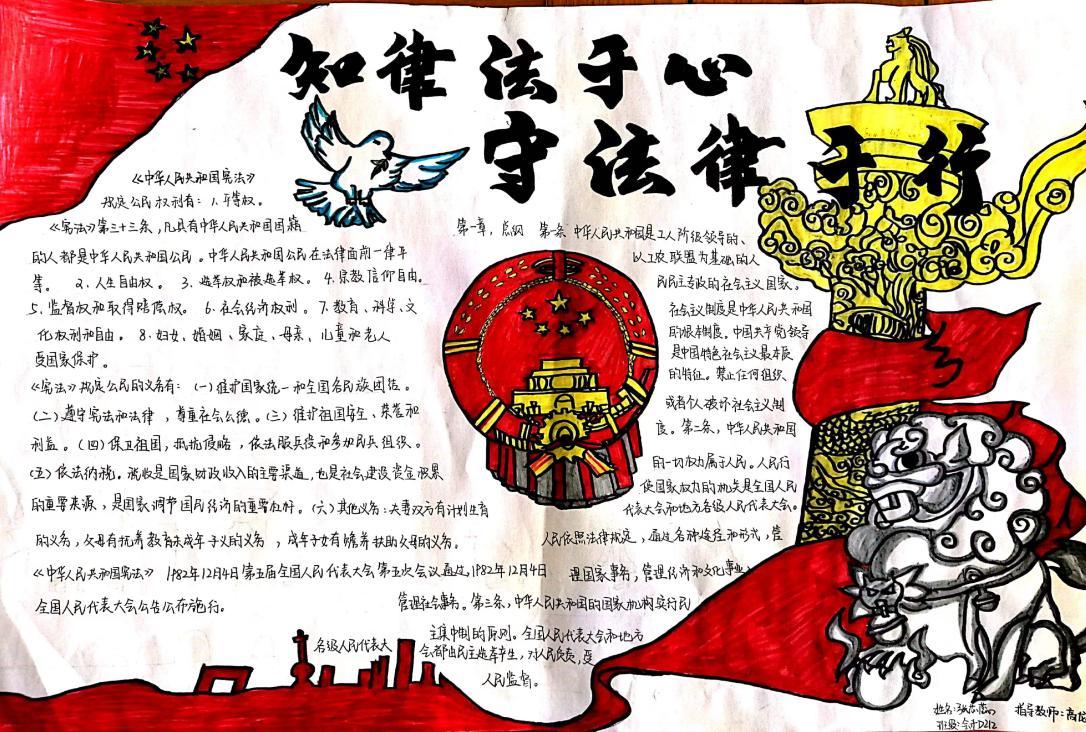 知律法于心
守法律于行
《中华人民共和国宪法》
规定公民权利有：1.平等权。
《宪法》第三十三条，凡具有中华人民共和国国籍
的人都是中华人民共和国公民。中华人民共和国公民在法律面前一律平
等。 2.人生自由权。 3.选举权和被选举权。 4.宗教信仰自由。
5.监督权和取得赔偿权。 6.社会经济权利。 7.教育、科学、文
化权利和自由。 8.妇女、婚姻、家庭、母亲、儿童和老人
受国家保护。
《宪法》规定公民的义务有：（一）维护国家统一和全国各民族团结。
（二）遵守宪法和法律，尊重社会公德。（三）维护祖国安全、荣誉和
利益。（四）保卫祖国，抵抗侵略，依法服兵役和参加民兵组织。
（五）依法纳税。税收是国家财政收入的主要渠道，也是社会建设资金积累
的重要来源，是国家调节国民经济的重要杠杆。（六）其他义务：夫妻双方有计划生育
的义务，父母有抚养教育未成年子义的义务，成年子女有赡养扶助父母的义务。
《中华人民共和国宪法》 1982年12月4日第五届全国人民代表大会第五次会议通过，1982年12月4日
全国人民代表大会公告公布施行。
第一章，总纲 第一条 中华人民共和国是工人阶级领导的、
以工农联盟为基础的人
民民主专政的社会主义国家。
社会主义制度是中华人民共和国
的根本制度。中国共产党领导
是中国特色社会主义最本质
的特征。禁止任何组织
或者个人破坏社会主义制
度。第二条，中华人民共和国
的一切权力属于人民。人民行
使国家权力的机关是全国人民
代表大会和地方各级人民代表大会。
人民依照法律规定，通过各种途径和形式，管
理国家事务，管理经济和文化事业，
管理社会事务。第三条，中华人民共和国的国家机构实行民
主集中制的原则。全国人民代表大会和地方
各级人民代表大会都由民主选举产生，对人民负责，受
人民监督。
姓名：张
班级：会计D212
指导教师：高